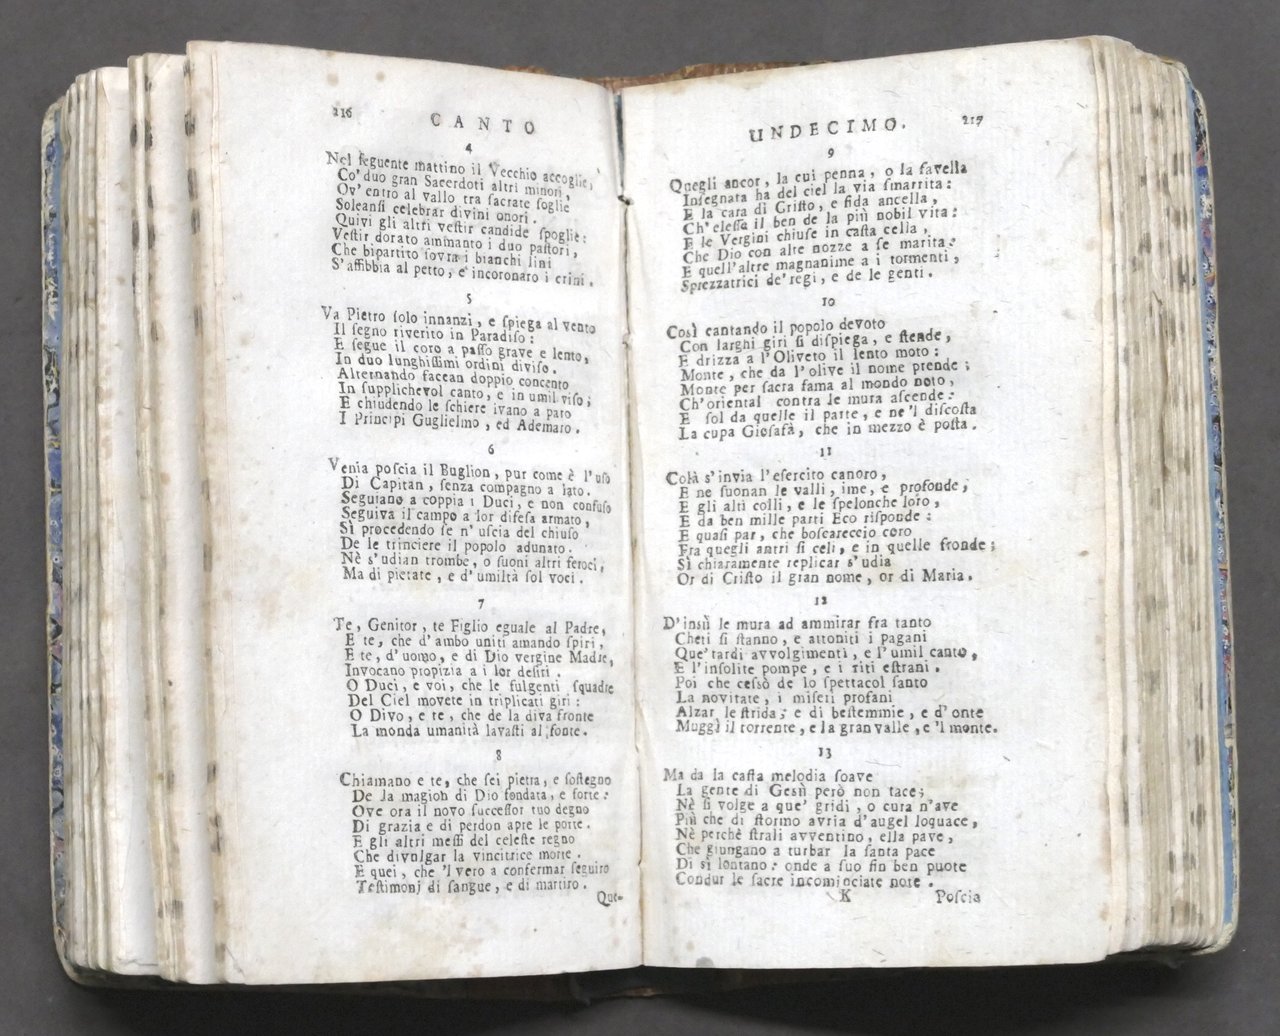 216
CANTO
4
Nel ſeguente mattino il Vecchio accoglie,
Co' duo gran Sacerdoti altri minori,
Ov' entro al vallo tra ſacrate ſoglie
Soleanſi celebrar divini onori.
Quivi gli altri veſtir candide ſpoglie:
Veſtir dorato ammanto i duo paſtori,
Che bipartito ſovra i bianchi lini
S'affibbia al petto, e incoronaro i crini.
5
Va Pietro ſolo innanzi, e ſpiega al vento
Il ſegno riverito in Paradiſo:
E ſegue il coro a paſſo grave e lento,
In duo lunghiſſimi ordini diviſo.
Alternando facean doppio concento
In ſupplichevol canto, e in umil viſo;
E chiudendo le ſchiere ivano a paro
I Principi Guglielmo, ed Ademaro.
6
Venia poſcia il Buglion, pur come è l'uſo
Di Capitan, ſenza compagno a lato.
Seguiano a coppia i Duci, e non confuſo
Seguiva il campo a lor difeſa armato,
Sì procedendo ſe n' uſcia del chiuſo
De le trinciere il popolo adunato.
Nè s'udian trombe, o ſuoni altri feroci,
Ma di pietate, e d'umiltà ſol voci.
7
Te, Genitor, te Figlio eguale al Padre,
E te, che d'ambo uniti amando ſpiri,
E te, d'uomo, e di Dio vergine Madre,
Invocano propizia a i lor deſiri.
O Duci, e voi, che le fulgenti ſquadre
Del Ciel movete in triplicati giri:
O Divo, e te, che de la diva fronte
La monda umanità lavaſti al fonte.
8
Chiamano e te, che ſei pietra, e ſoſtegno
De la magion di Dio fondata, e forte:
Ove ora il novo ſucceſſor tuo degno
Di grazia e di perdon apre le porte.
E gli altri meſſi del celeſte regno
Che divulgar la vincitrice morte.
E quei, che 'l vero a confermar ſeguiro
Teſtimonj di ſangue, e di martiro.
Que-
UNDECIMO.
217
9
Quegli ancor, la cui penna, o la favella
Inſegnata ha del ciel la via ſmarrita:
E la cara di Criſto, e fida ancella,
Ch'eleſſe il ben de la più nobil vita:
E le Vergini chiuſe in caſta cella,
Che Dio con alte nozze a ſe marita:
E quell'altre magnanime a i tormenti,
Sprezzatrici de' regi, e de le genti.
10
Così cantando il popolo devoto
Con larghi giri ſi diſpiega, e ſtende,
E drizza a l'Oliveto il lento moto:
Monte, che da l'olive il nome prende;
Monte per ſacra fama al mondo noto,
Ch'oriental contra le mura aſcende:
E ſol da quelle il parte, e ne 'l diſcoſta
La cupa Gioſafà, che in mezzo è poſta.
11
Colà s'invia l'eſercito canoro,
E ne ſuonan le valli, ime, e profonde,
E gli alti colli, e le ſpelonche loro,
E da ben mille parti Eco riſponde:
E quaſi par, che boſcareccio coro
Fra quegli antri ſi celi, e in quelle fronde;
Sì chiaramente replicar s'udia
Or di Criſto il gran nome, or di Maria.
12
D'insù le mura ad ammirar fra tanto
Cheti ſi ſtanno, e attoniti i pagani
Que' tardi avvolgimenti, e l'umil canto,
E l'inſolite pompe, e i riti eſtrani.
Poi che ceſsò de lo ſpettacol ſanto
La novitate, i miſeri profani
Alzar le ſtrida; e di beſtemmie, e d'onte
Muggì il torrente, e la gran valle, e 'l monte.
13
Ma da la caſta melodia ſoave
La gente di Gesù però non tace;
Nè ſi volge a que' gridi, o cura n'ave
Più che di ſtormo avria d'augel loquace,
Nè perchè ſtrali avventino, ella pave,
Che giungano a turbar la ſanta pace
Di sì lontano: onde a ſuo fin ben puote
Condur le ſacre incominciate note.
K
Poſcia